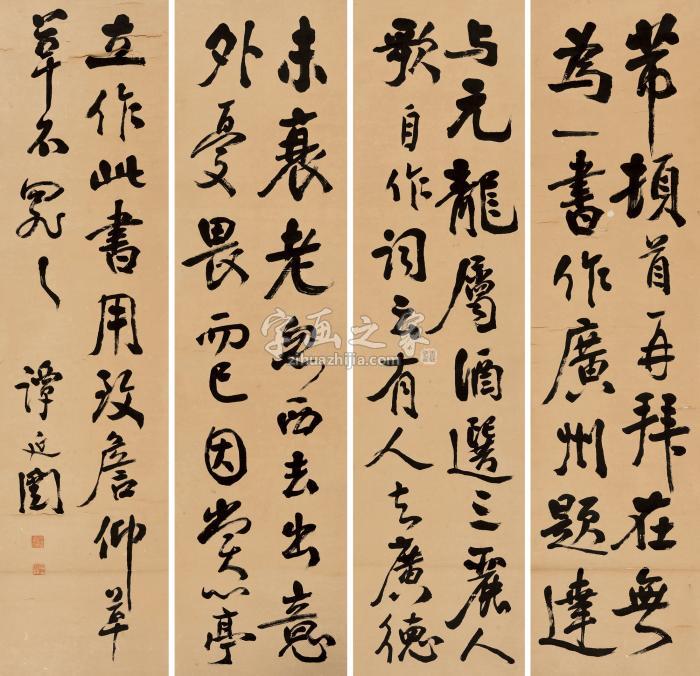 芾頓首再拜在無
為一書作廣州題達
与元龍屬酒選三麗人
歌自作詞云有人去廣德
未衰老忽西去出意
外憂畏而已因赏心亭
立作此書用致詹仰草
草不宛〻
譚延闓
字画之家
zihuazhijia.com